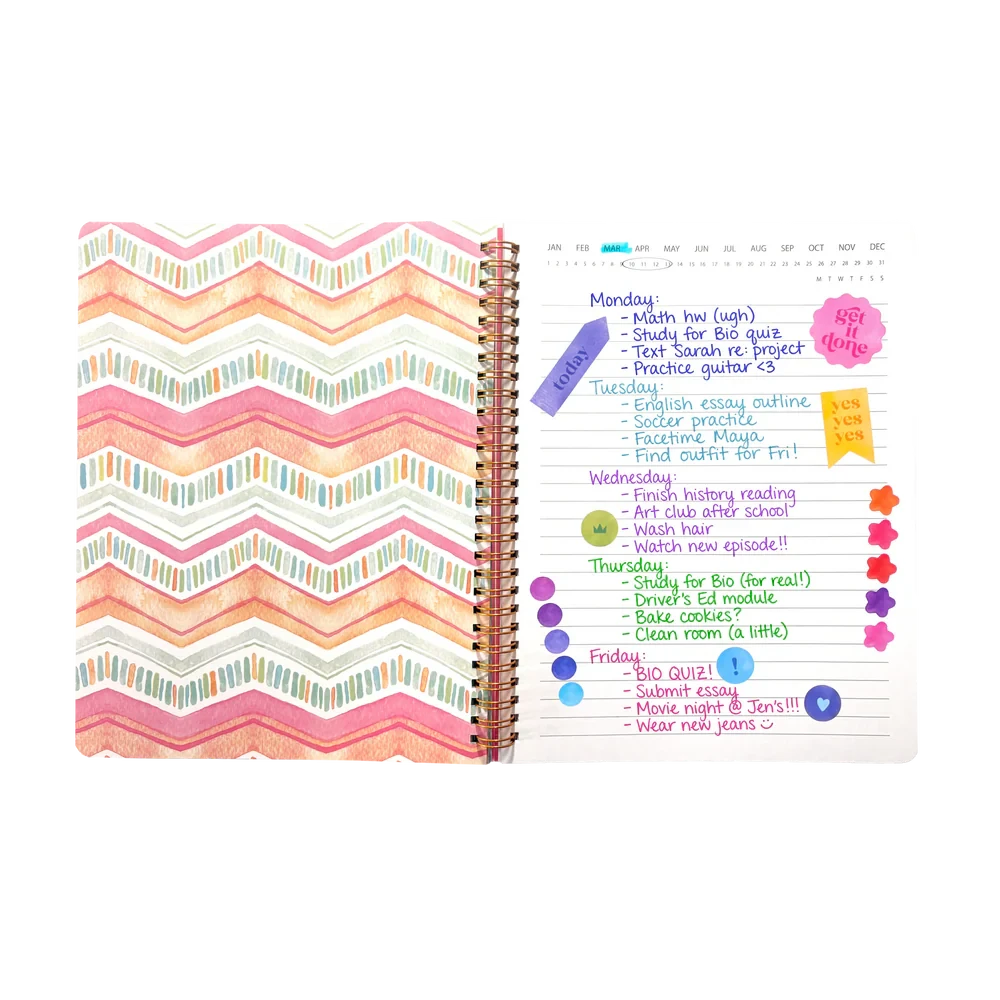 JAN FEB MAR APR MAY JUN JUL AUG SEP OCT NOV DEC
1 2 3 4 5 6 7 8 9 10 11 12 13 14 15 16 17 18 19 20 21 22 23 24 25 26 27 28 29 30 31
M T W T F S S
Monday:
- Math hw (ugh)
- Study for Bio quiz
- Text Sarah re: project
- Practice guitar <3
today
get
it
done
Tuesday:
- English essay outline
- Soccer practice
- Facetime Maya
- Find outfit for Fri!
yes
yes
yes
Wednesday:
- Finish history reading
- Art club after school
- Wash hair
- Watch new episode!!
Thursday:
- Study for Bio (for real!)
- Driver's Ed module
- Bake cookies?
- Clean room (a little)
Friday:
- BIO QUIZ!
!
- Submit essay
- Movie night @ Jen's!!!
- Wear new jeans